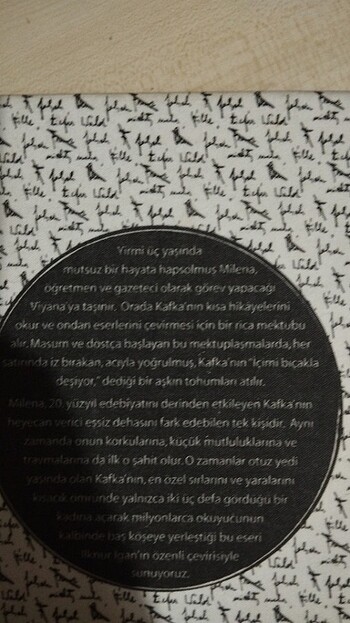 Yirmi üç yaşında
mutsuz bir hayata hapsolmuş Milena,
öğretmen ve gazeteci olarak görev yapacağı
Viyana'ya taşınır. Orada Kafka'nın kısa hikayelerini
okur ve ondan eserlerini çevirmesi için bir rica mektubu
alır. Masum ve dostça başlayan bu mektuplaşmalarda, her
satırında iz bırakan, acıyla yoğrulmuş, Kafka'nın "İçimi bıçakla
deşiyor," dediği bir aşkın tohumları atılır.
Milena, 20. yüzyıl edebiyatını derinden etkileyen Kafka'nın
heyecan verici eşsiz dehasını fark edebilen tek kişidir. Aynı
zamanda onun korkularına, küçük mutluluklarına ve
travmalarına da ilk o şahit olur. O zamanlar otuz yedi
yaşında olan Kafka'nın, en özel sırlarını ve yaralarını
kısacık ömründe yalnızca iki üç defa gördüğü bir
kadına açarak milyonlarca okuyucunun
kalbinde baş köşeye yerleştiği bu eseri
İlknur İgan'ın özenli çevirisiyle
sunuyoruz.